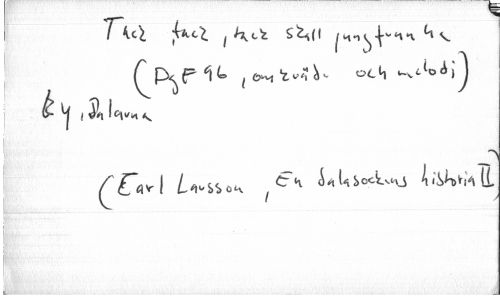 Tack, tack, tack skall jungfrun ha
(DgF 96, omkväde och melodi)
By, Dalarna
(Earl Larsson, En dalasockens historia II)